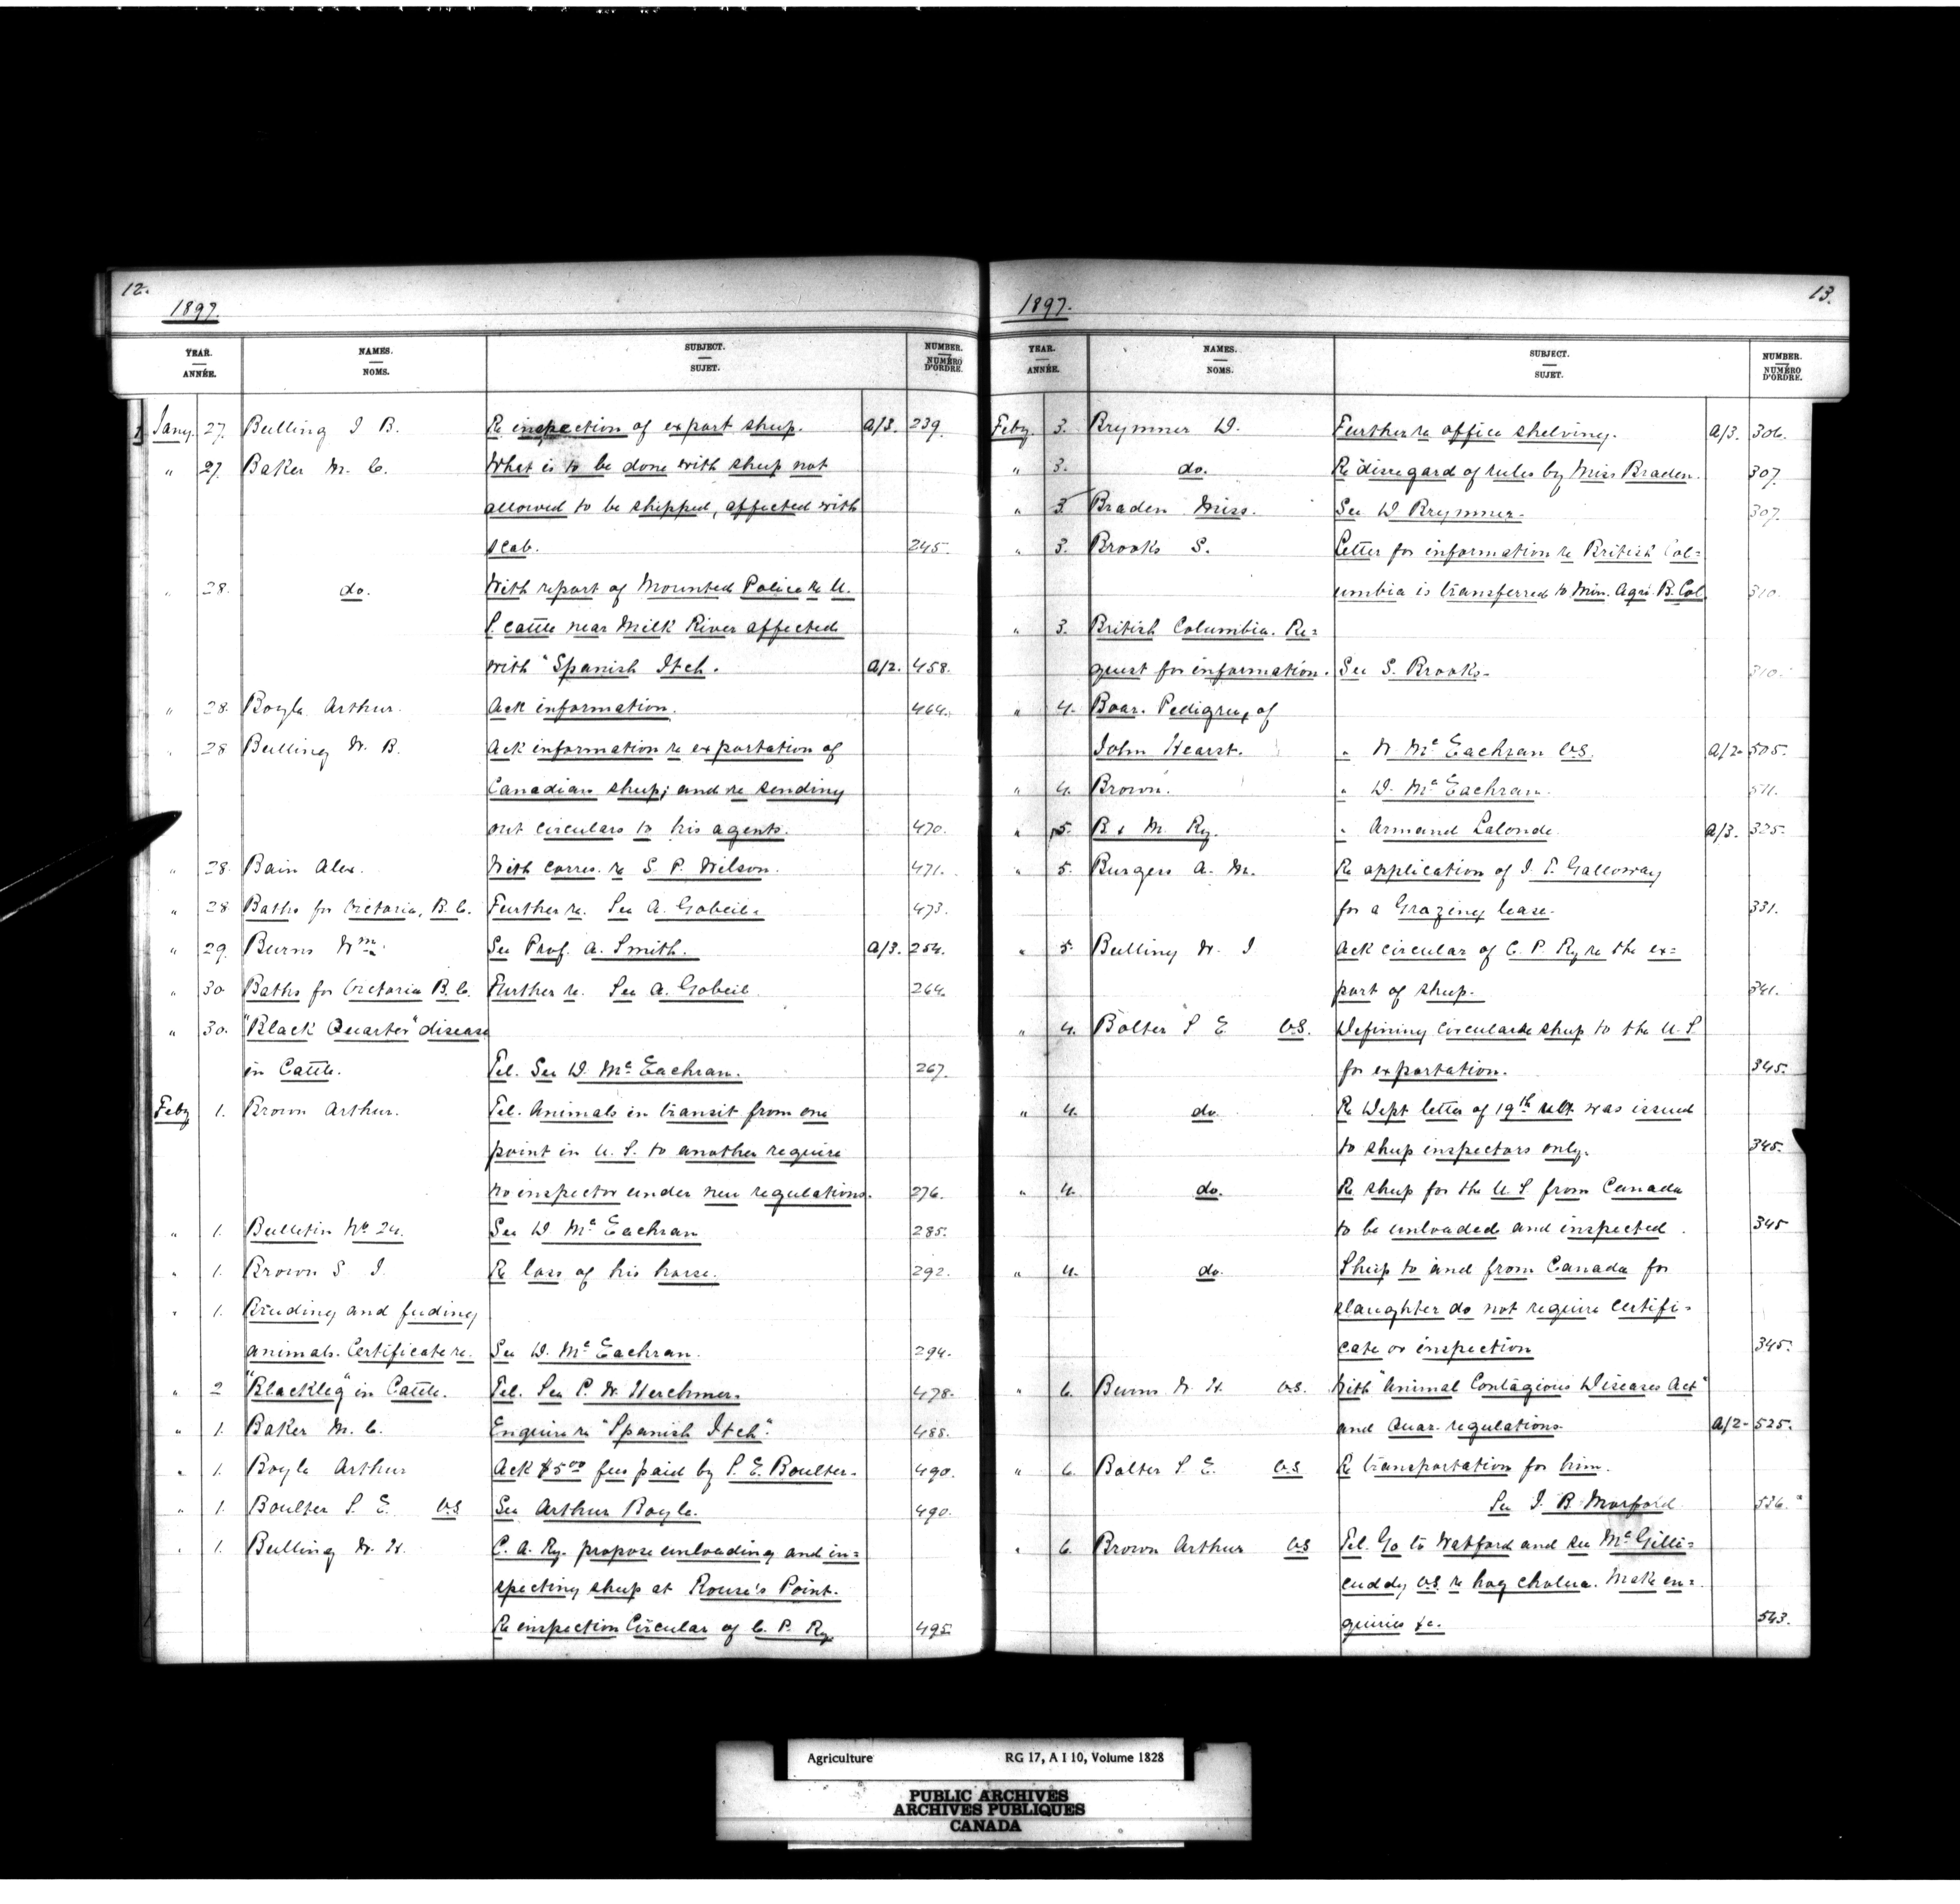 12.
1897.
YEAR. ANNÉE. NAMES. NOMS. SUBJECT. SUJET. NUMBER. NUMÉRO D'ORDRE.
Jany. 27. Bulling J B. Re inspection of export sheep. A/3. 239.
" 27. Baker M. C. What is to be done with sheep not
allowed to be shipped, affected with
scab. 245.
" 28. do. With report of Mounted Police re U.
S. cattle near Milk River affected
with "Spanish Itch. A/2. 458.
" 28. Boyle Arthur. Ack information. 464.
" 28 Bulling W. B. Ack information re exportation of
Canadian sheep; and re sending
out circulars to his agents. 470.
" 28. Bain Alex. With corres. re S. P. Wilson. 471.
" 28 Baths for Victoria, B. C. Further re. See A. Gobeil. 473.
" 29. Burns Wm. See Prof. A. Smith. A/3. 254.
" 30 Baths for Victoria B. C. Further re. See A. Gobeil. 264.
" 30. "Black Quarter" disease
in Cattle. Tel. See D. McEachran. 267.
Feby 1. Brown Arthur. Tel. Animals in transit from one
point in U. S. to another require
no inspector under new regulations. 276.
" 1. Bulletin No. 24. See D McEachran 285.
" 1. Brown S J. Re loss of his horse. 292.
" 1. Breeding and feeding
animals. Certificate re. See D. McEachran. 294.
" 2 "Blackleg" in Cattle. Tel. See P. W. Herchmer. 478.
" 1. Baker M. C. Enquire re "Spanish Itch." 488.
" 1. Boyle Arthur Ack $5.00 fees paid by S. E. Boulter. 490.
" 1. Boulter S. E. V.S See Arthur Boyle. 490.
" 1. Bulling W. H. C. A. Ry. propose unloading and in=
specting sheep at Rouse's Point.
Re inspection Circular of C. P. Ry 495.
1897.
13.
YEAR. ANNÉE. NAMES. NOMS. SUBJECT. SUJET. NUMBER. NUMÉRO D'ORDRE.
Feby. 3. Brymner D. Further re office shelving. A/3. 306.
" 3. do. Re disregard of rules by Miss Braden. 307.
" 3. Braden Miss. See D Brymner. 307.
" 3. Brooks S. Letter for information re British Col=
umbia is transferred to Min. Agri. B. Col 310.
" 3. British Columbia. Re=
quest for information. See S. Brooks. 310.
" 4. Boar. Pedigree, of
John Hearst. " D. McEachran V.S. A/2. 505.
" 4. Brown. " D. McEachran. 511.
" 5. B. & M. Ry. " Armand Lalonde. A/3. 325.
" 5. Burgess A. M. Re application of J. T. Galloway
for a Grazing lease. 331.
" 5. Bulling W. J Ack circular of C. P. Ry re the ex=
port of sheep. 341.
" 4. Bolter S E V.S. Defining circular re sheep to the U. S.
for exportation. 345.
" 4. do. Re Dept letter of 19th ult was issued
to sheep inspectors only. 345.
" 4. do. Re sheep for the U. S. from Canada
to be unloaded and inspected. 345
" 4. do. Sheep to and from Canada for
slaughter do not require certifi=
cate or inspection 345.
" 6. Burns W. H. V.S. With "Animal Contagious Diseases Act"
and Quar. regulations. A/2. 525.
" 6. Bolter S. E. V.S Re transportation for him.
See J. B. Morford. 536.
" 6. Brown Arthur V.S Tel. Go to Watford and see McGilli=
cuddy V.S. re hog cholera. Make en=
quiries &c. 543.
Agriculture RG 17, A I 10, Volume 1828
PUBLIC ARCHIVES
ARCHIVES PUBLIQUES
CANADA